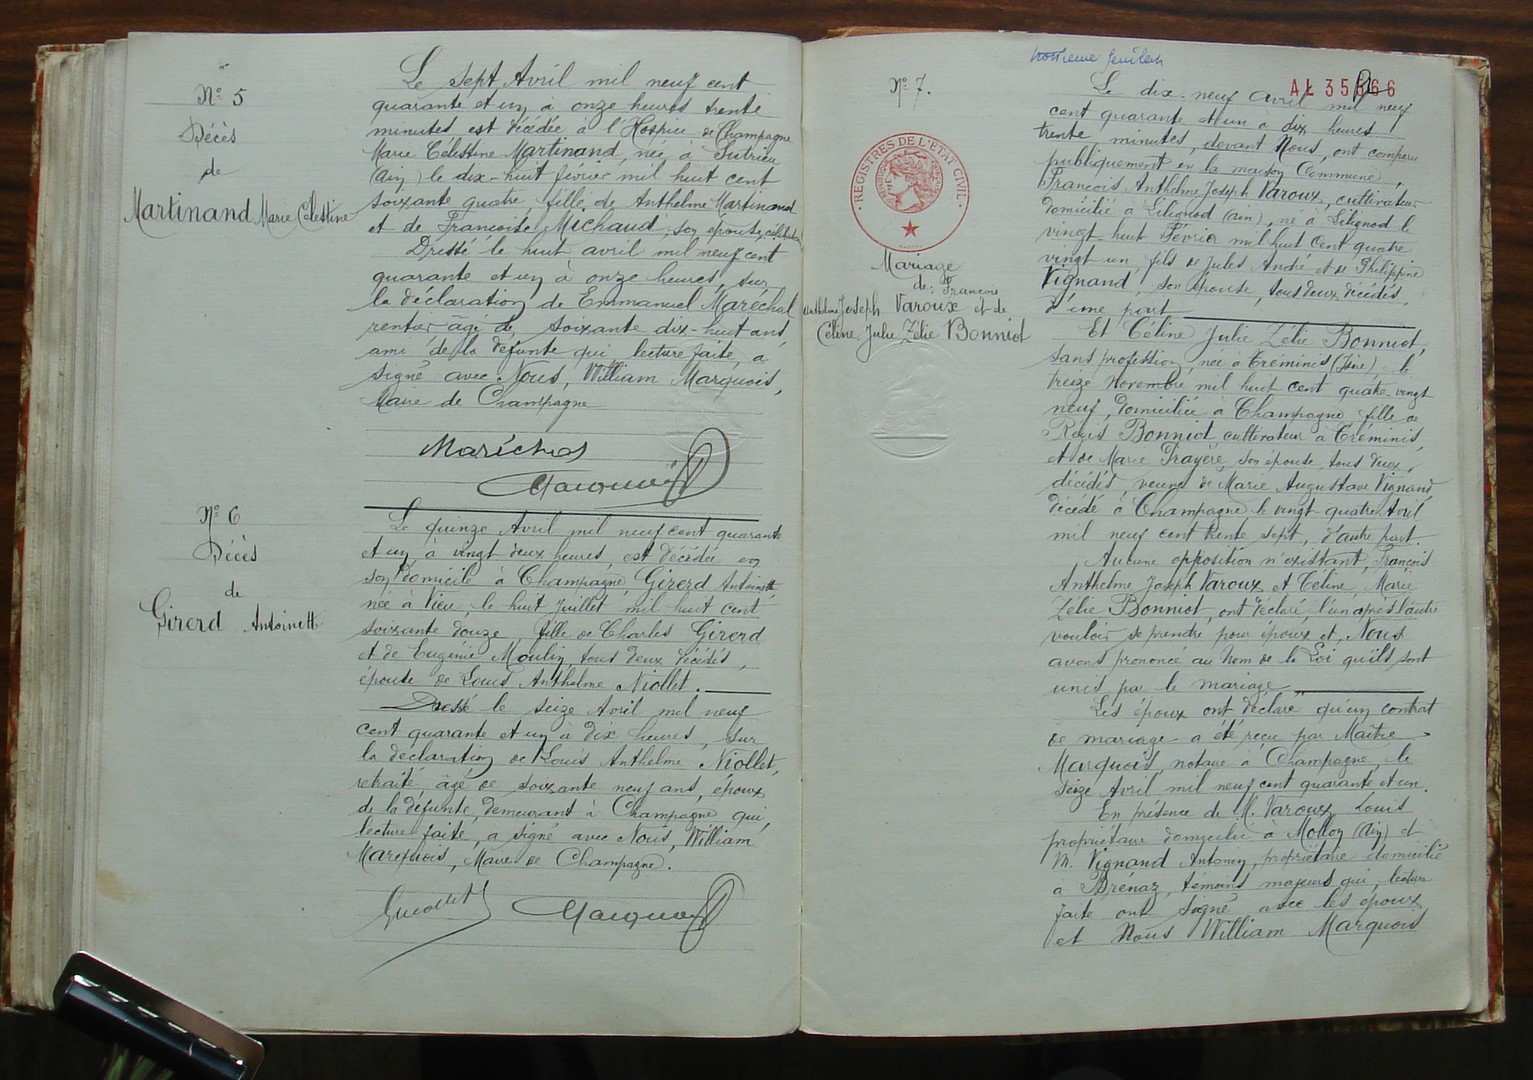 N° 5
Décès
de
Martinand Marie Célestine
Le sept Avril mil neuf cent
quarante et un à onze heures trente
minutes, est décédée à l'Hospice de Champagne
Marie Célestine Martinand, née à Sutrieu
(Ain) le dix-huit février mil huit cent
soixante quatre, fille de Anthelme Martinand
et de Françoise Michaud, son épouse, célibataire
Dressé le huit avril mil neuf cent
quarante et un à onze heures, sur
la déclaration de Emmanuel Maréchal
rentier âgé de soixante dix-huit ans,
ami de la défunte qui lecture faite, a
signé avec Nous, William Marquois,
Maire de Champagne
Maréchal
Marquois
N° 6
Décès
de
Girerd Antoinette
Le quinze Avril mil neuf cent quarante
et un à vingt deux heures, est décédée en
son domicile à Champagne, Girerd Antoinette
née à Vieu, le huit Juillet mil huit cent
soixante douze, fille de Charles Girerd
et de Eugénie Moulin, tous deux décédés,
épouse de Louis Anthelme Niollet.
Dressé le seize Avril mil neuf
cent quarante et un à dix heures, sur
la déclaration de Louis Anthelme Niollet,
retraité, âgé de soixante neuf ans, époux
de la défunte, demeurant à Champagne qui,
lecture faite, a signé avec Nous, William
Marquois, Maire de Champagne.
Marquois
troisième feuillet
AŁ 35566
N° 7.
REGISTRES DE L'ETAT CIVIL
Mariage
de: François
Anthelme Joseph Varoux et de
Céline Julie Zélie Bonniot
Le dix-neuf avril mil neuf
cent quarante et un à dix heures
trente minutes, devant Nous, ont comparu
publiquement en la maison Commune,
François Anthelme Joseph Varoux, cultivateur
domicilié à Lilignod (Ain), né à Lilignod le
vingt-huit Février mil huit cent quatre
vingt un, fils de Jules André et de Philippine
Vignand, son épouse, tous deux décédés,
d'une part
Et Céline Julie Zélie Bonniot,
sans profession, née à Tréminis (Isère) le
treize Novembre mil huit cent quatre-vingt
neuf, domiciliée à Champagne fille de
Régis Bonniot, cultivateur à Tréminis,
et de Marie Prayere, son épouse, tous deux
décédés, veuve de Marie Augustave Vignand,
décédé à Champagne le vingt quatre Avril
mil neuf cent trente sept, d'autre part.
Aucune opposition n'existant, François
Anthelme Joseph Varoux et Céline, Marie
Zélie Bonniot, ont déclaré l'un après l'autre
vouloir se prendre pour époux et, Nous
avons prononcé au Nom de la Loi qu'ils sont
unis par le mariage
Les époux ont déclaré qu'un contrat
de mariage a été reçu par Maître
Marquois, notaire à Champagne, le
seize Avril mil neuf cent quarante et un.
En présence de M. Varoux, Louis
propriétaire domicilié à (Ain) et
M. Vignand Antonin, propriétaire domicilié
à Brénaz, témoins majeurs qui, lecture
faite ont signé avec les époux
et Nous William Marquois